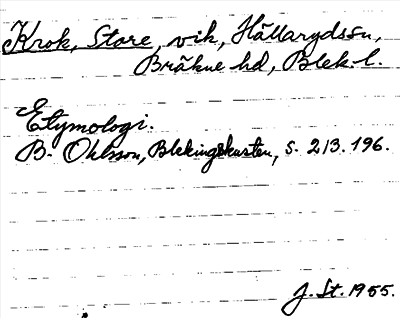 Krok, Store, vik, Hällarydssn,
Bräkne hd, Blek. l.
Etymologi.
B. Ohlsson, Blekingekusten, s. 213. 196.
J. St. 1955.